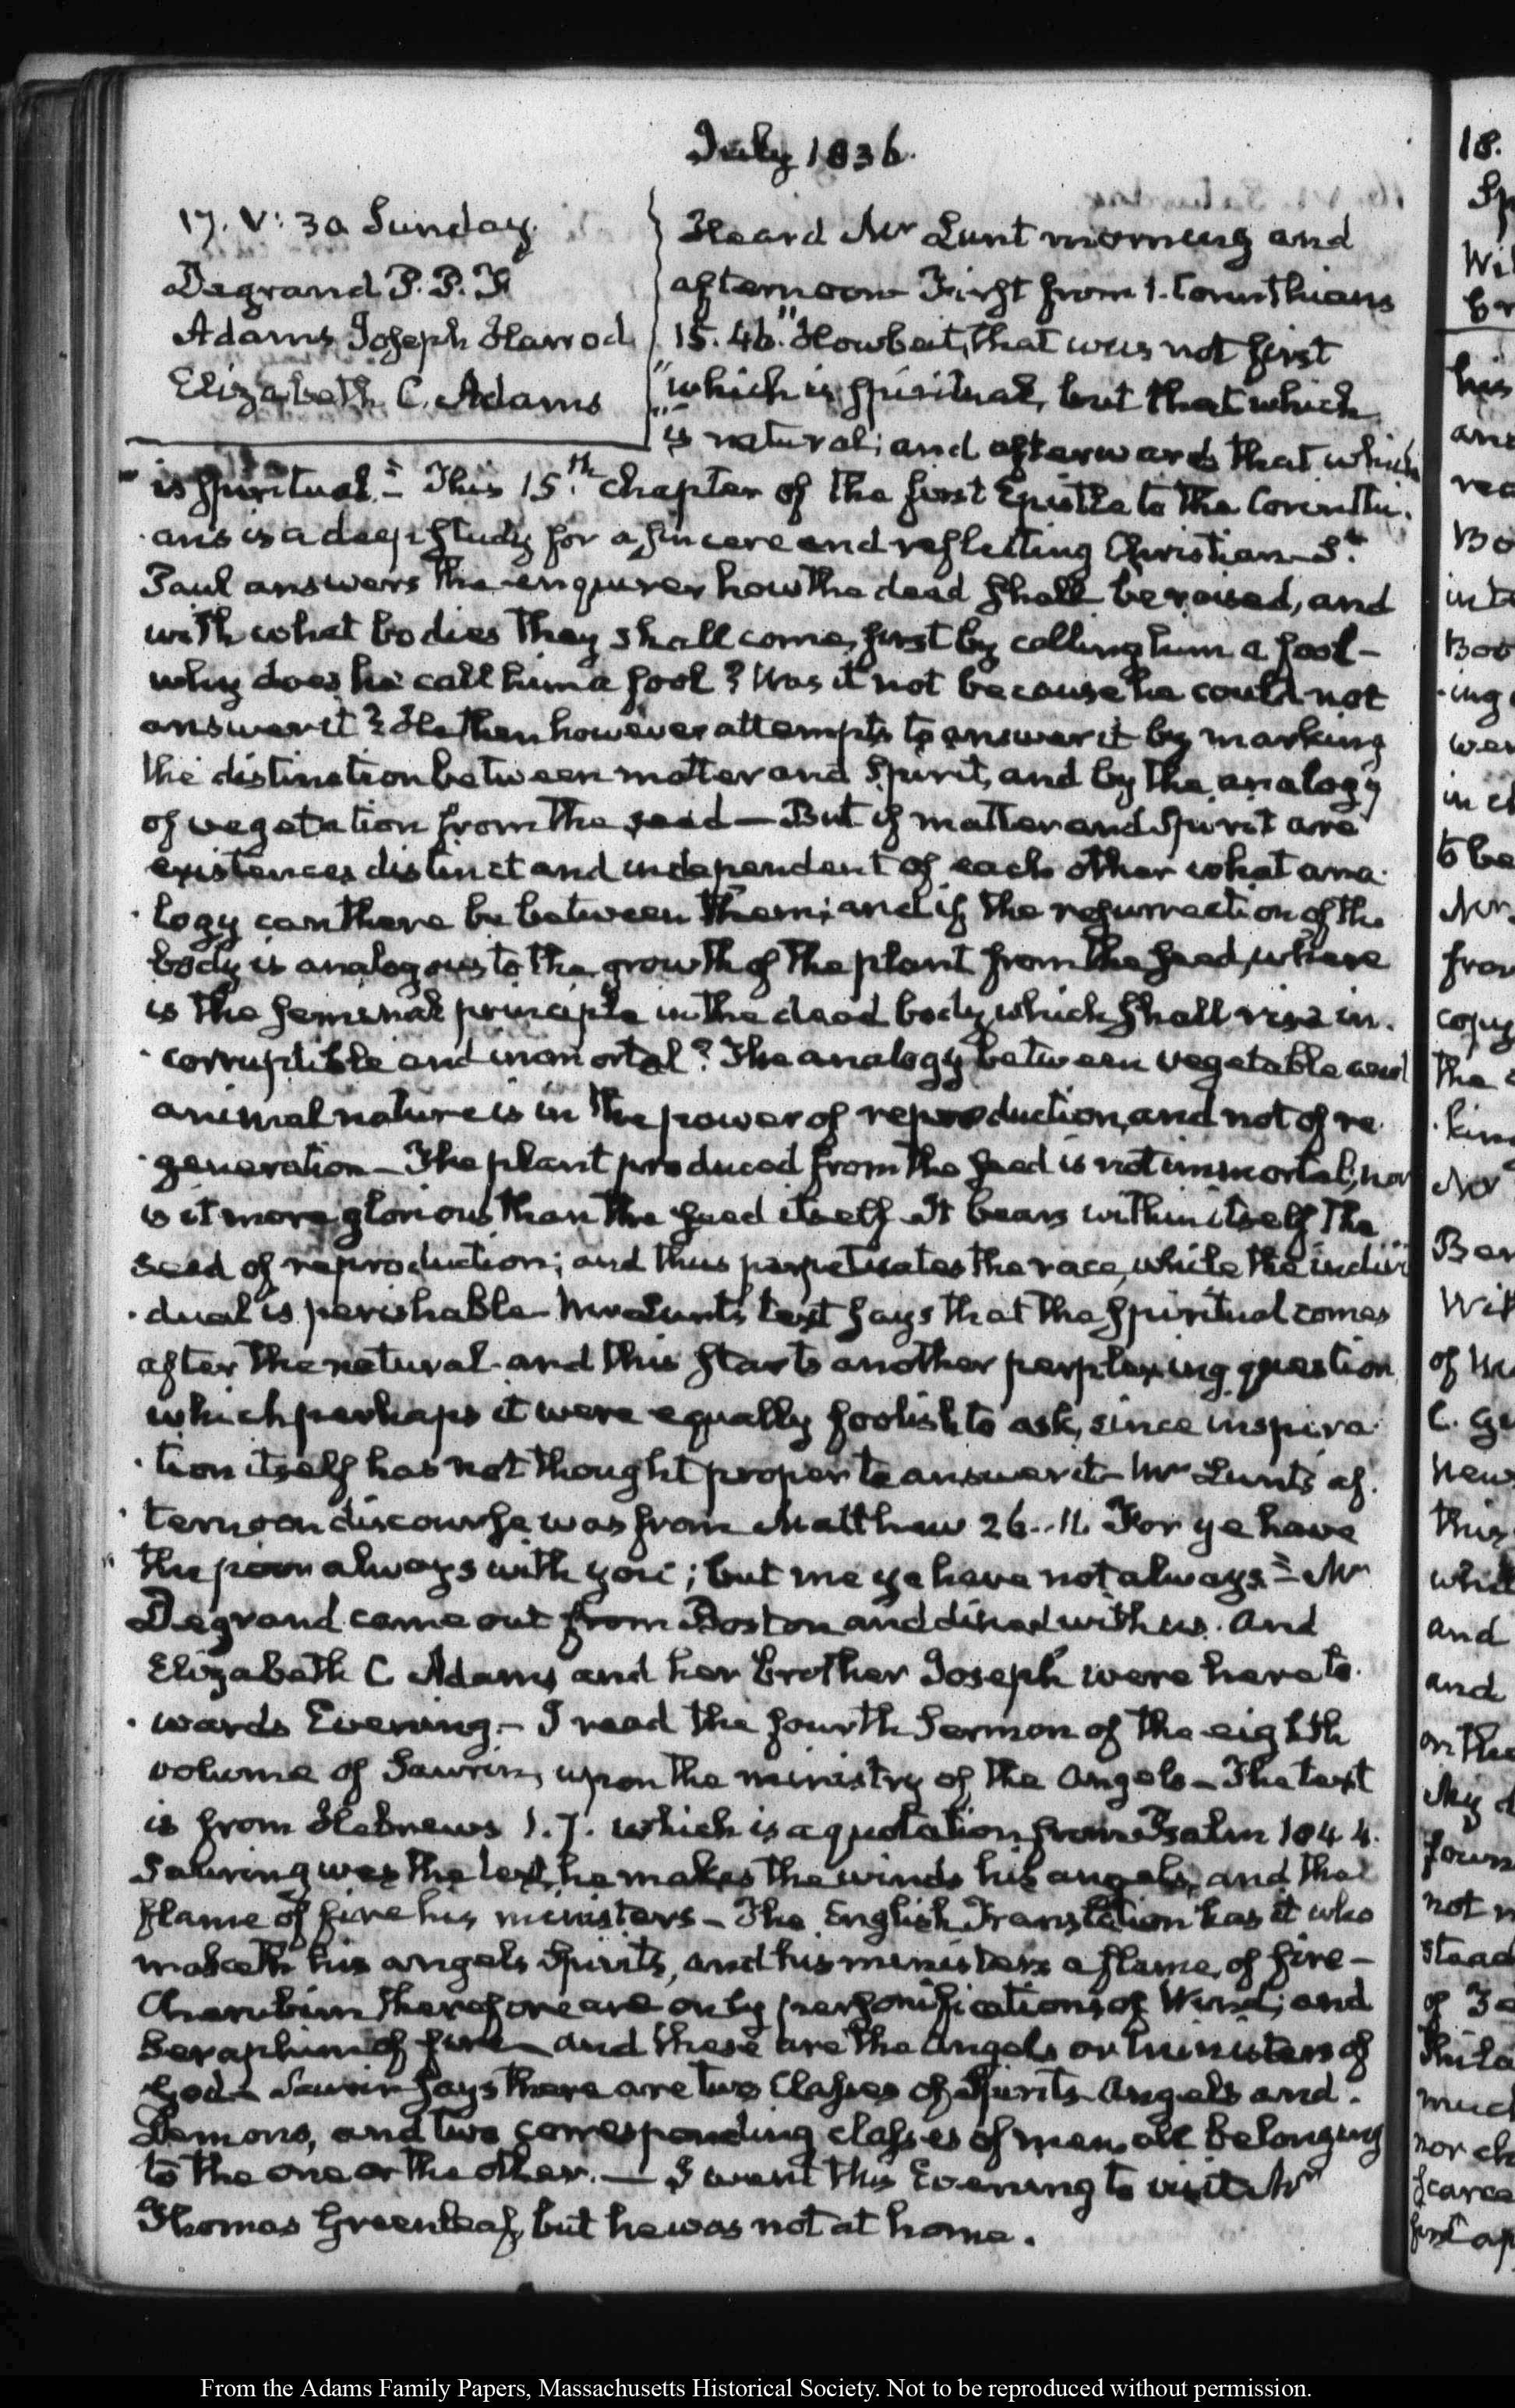 July 1836.
17. V: 30 Sunday.
Degrand P. P. F.
Adams Joseph Harrod
Elizabeth C. Adams
Heard Mr Lunt morning and
afternoon First from 1. Corinthians
15. 46. "Howbeit, that was not first
"which is spiritual, but that which
"is natural; and afterwards that which
"is spiritual."— This 15th. chapter of the first Epistle to the Corinthi-
-ans is a deep study for a sincere and reflecting Christian—St.
Paul answers the enquirer how the dead shall be raised, and
with what bodies they shall come, first by calling him a fool—
why does he call him a fool? Was it not because he could not
answer it? He then however attempts to answer it by marking
the distinction between matter and Spirit, and by the analogy
of vegetation from the seed—But if matter and Spirit are
existences distinct and independent of each other what ana-
-logy can there be between them; and if the resurrection of the
body is analogous to the growth of the plant from the seed, where
is the seminal principle in the dead body which shall rise in-
-corruptible and immortal? The analogy between vegetable and
animal nature is in the power of reproduction, and not of re-
-generation—The plant produced from the seed is not immortal; nor
is it more glorious than the seed itself—It bears within itself the
seed of reproduction; and thus perpetuates the race, while the indivi-
-dual is perishable—Mr Lunt's text says that the spiritual comes
after the natural—and this starts another perplexing question
which perhaps it were equally foolish to ask, since inspira-
-tion itself has not thought proper to answer it—Mr Lunt's af-
-ternoon discourse was from Matthew 26..11. For ye have
"the poor always with you; but me ye have not always."—Mr
Degrand came out from Boston and dined with us. And
Elizabeth C Adams and her brother Joseph were here to-
-wards Evening.— I read the fourth Sermon of the eighth
volume of Saurin, upon the ministry of the Angels—The text
is from Hebrews 1. 7. which is a quotation from Psalm 104. 4.
Saurin gives the text, he makes the winds his angels, and the
flame of fire his ministers—The English Translation has it who
maketh his angels Spirits, and his ministers a flame of fire—
Cherubim therefore are only personifications of Wind; and
Seraphim of fire—and these are the Angels or ministers of
God—Saurin says there are two Classes of Spirits—Angels and
Demons, and two corresponding classes of men, all belonging
to the one or the other.— I went this Evening to visit Mr
Thomas Greenleaf, but he was not at home.
18.
From the Adams Family Papers, Massachusetts Historical Society. Not to be reproduced without permission.